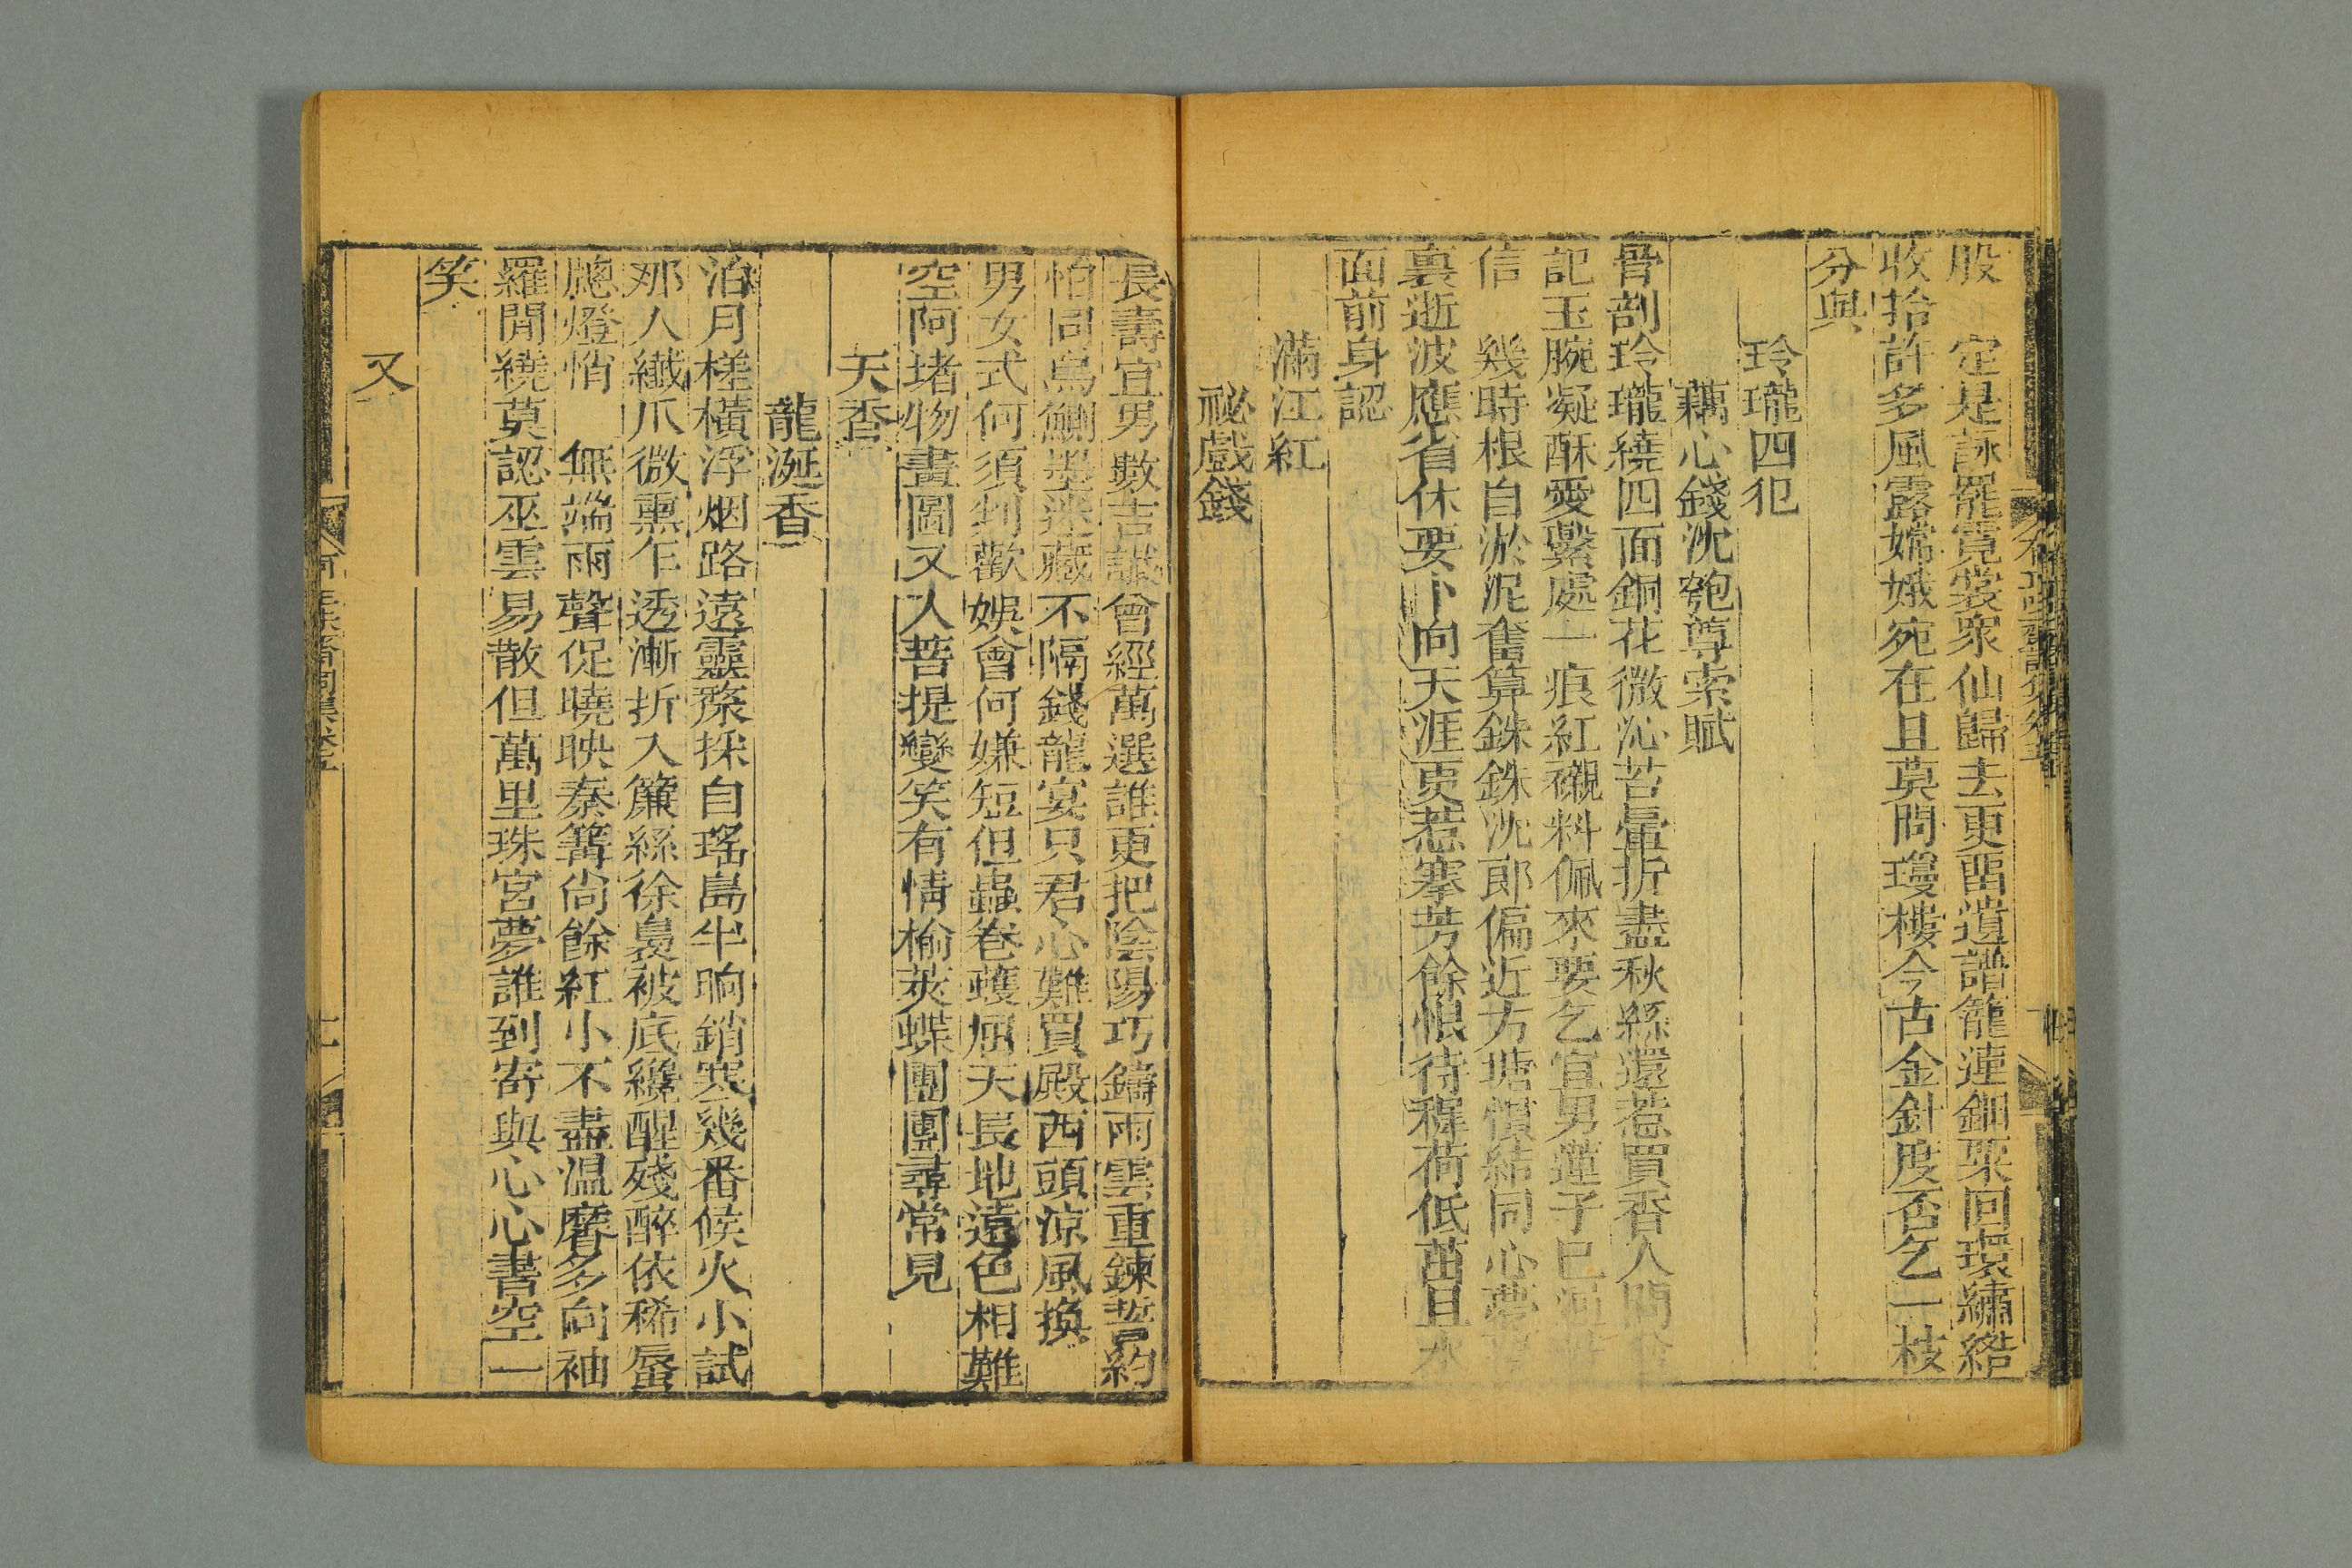 股　定是詠罷霓裳衆仙歸去更畱遺譜籠蓮鈿粟回環繡綹
收拾許多風露嫦娥宛在且莫問瓊樓今古金針度否乞一枝
分與
玲瓏四犯
藕心錢沈匏尊索賦
骨剖玲瓏繞四面銅花微沁苔暈折盡秋絲還惹買香人問
記玉腕凝酥愛繫處一痕紅襯料佩來要乞宜男蓮子已
信　幾時根自淤泥奮算銖銖沈郎偏近方塘慣結同心夢
裏逝波應省休要卜向天涯更惹搴芳餘恨待稺荷低茁且水
面前身認
滿江紅
祕戲錢
長壽宜男數吉讖曾經萬選誰更把陰陽巧鑄雨雲重鍊誓約
怕同烏鰂墨迷藏不隔錢龍宴只君心難買殿西頭涼風換
男女式何須判歡娛會何嫌短但蟲卷蠖屈天長地遠色相難
空阿堵物畫圖又入菩提變笑有情榆莢蝶團團尋常見
天香
龍涎香
泊月槎橫浮烟路遠靈㴑採自瑤島半晌銷寒幾番候火小試
那人纖爪微熏乍透漸折入簾絲徐裊被底纔醒殘醉依稀蜃
牕燈悄　無端雨聲促曉映秦篝尚餘紅小不盡温麐多向袖
羅閒繞莫認巫雲易散但萬里珠宮夢誰到寄與心心書空一
笑
又